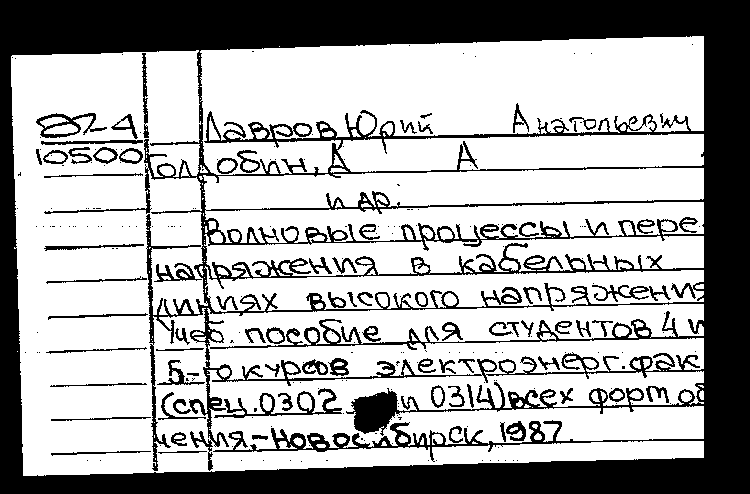 824 Лавров Юрий Анатольевич
10500 Голдобин, А А
и др.
Волновые процессы и пере-
напряжения в кабельных
линиях высокого напряжения
Учеб. пособие для студентов 4 и
5-го курсов электроэнерг. фак
(спец. 0302 и 0314) всех форт об
чения,-Новосибирск, 1987.